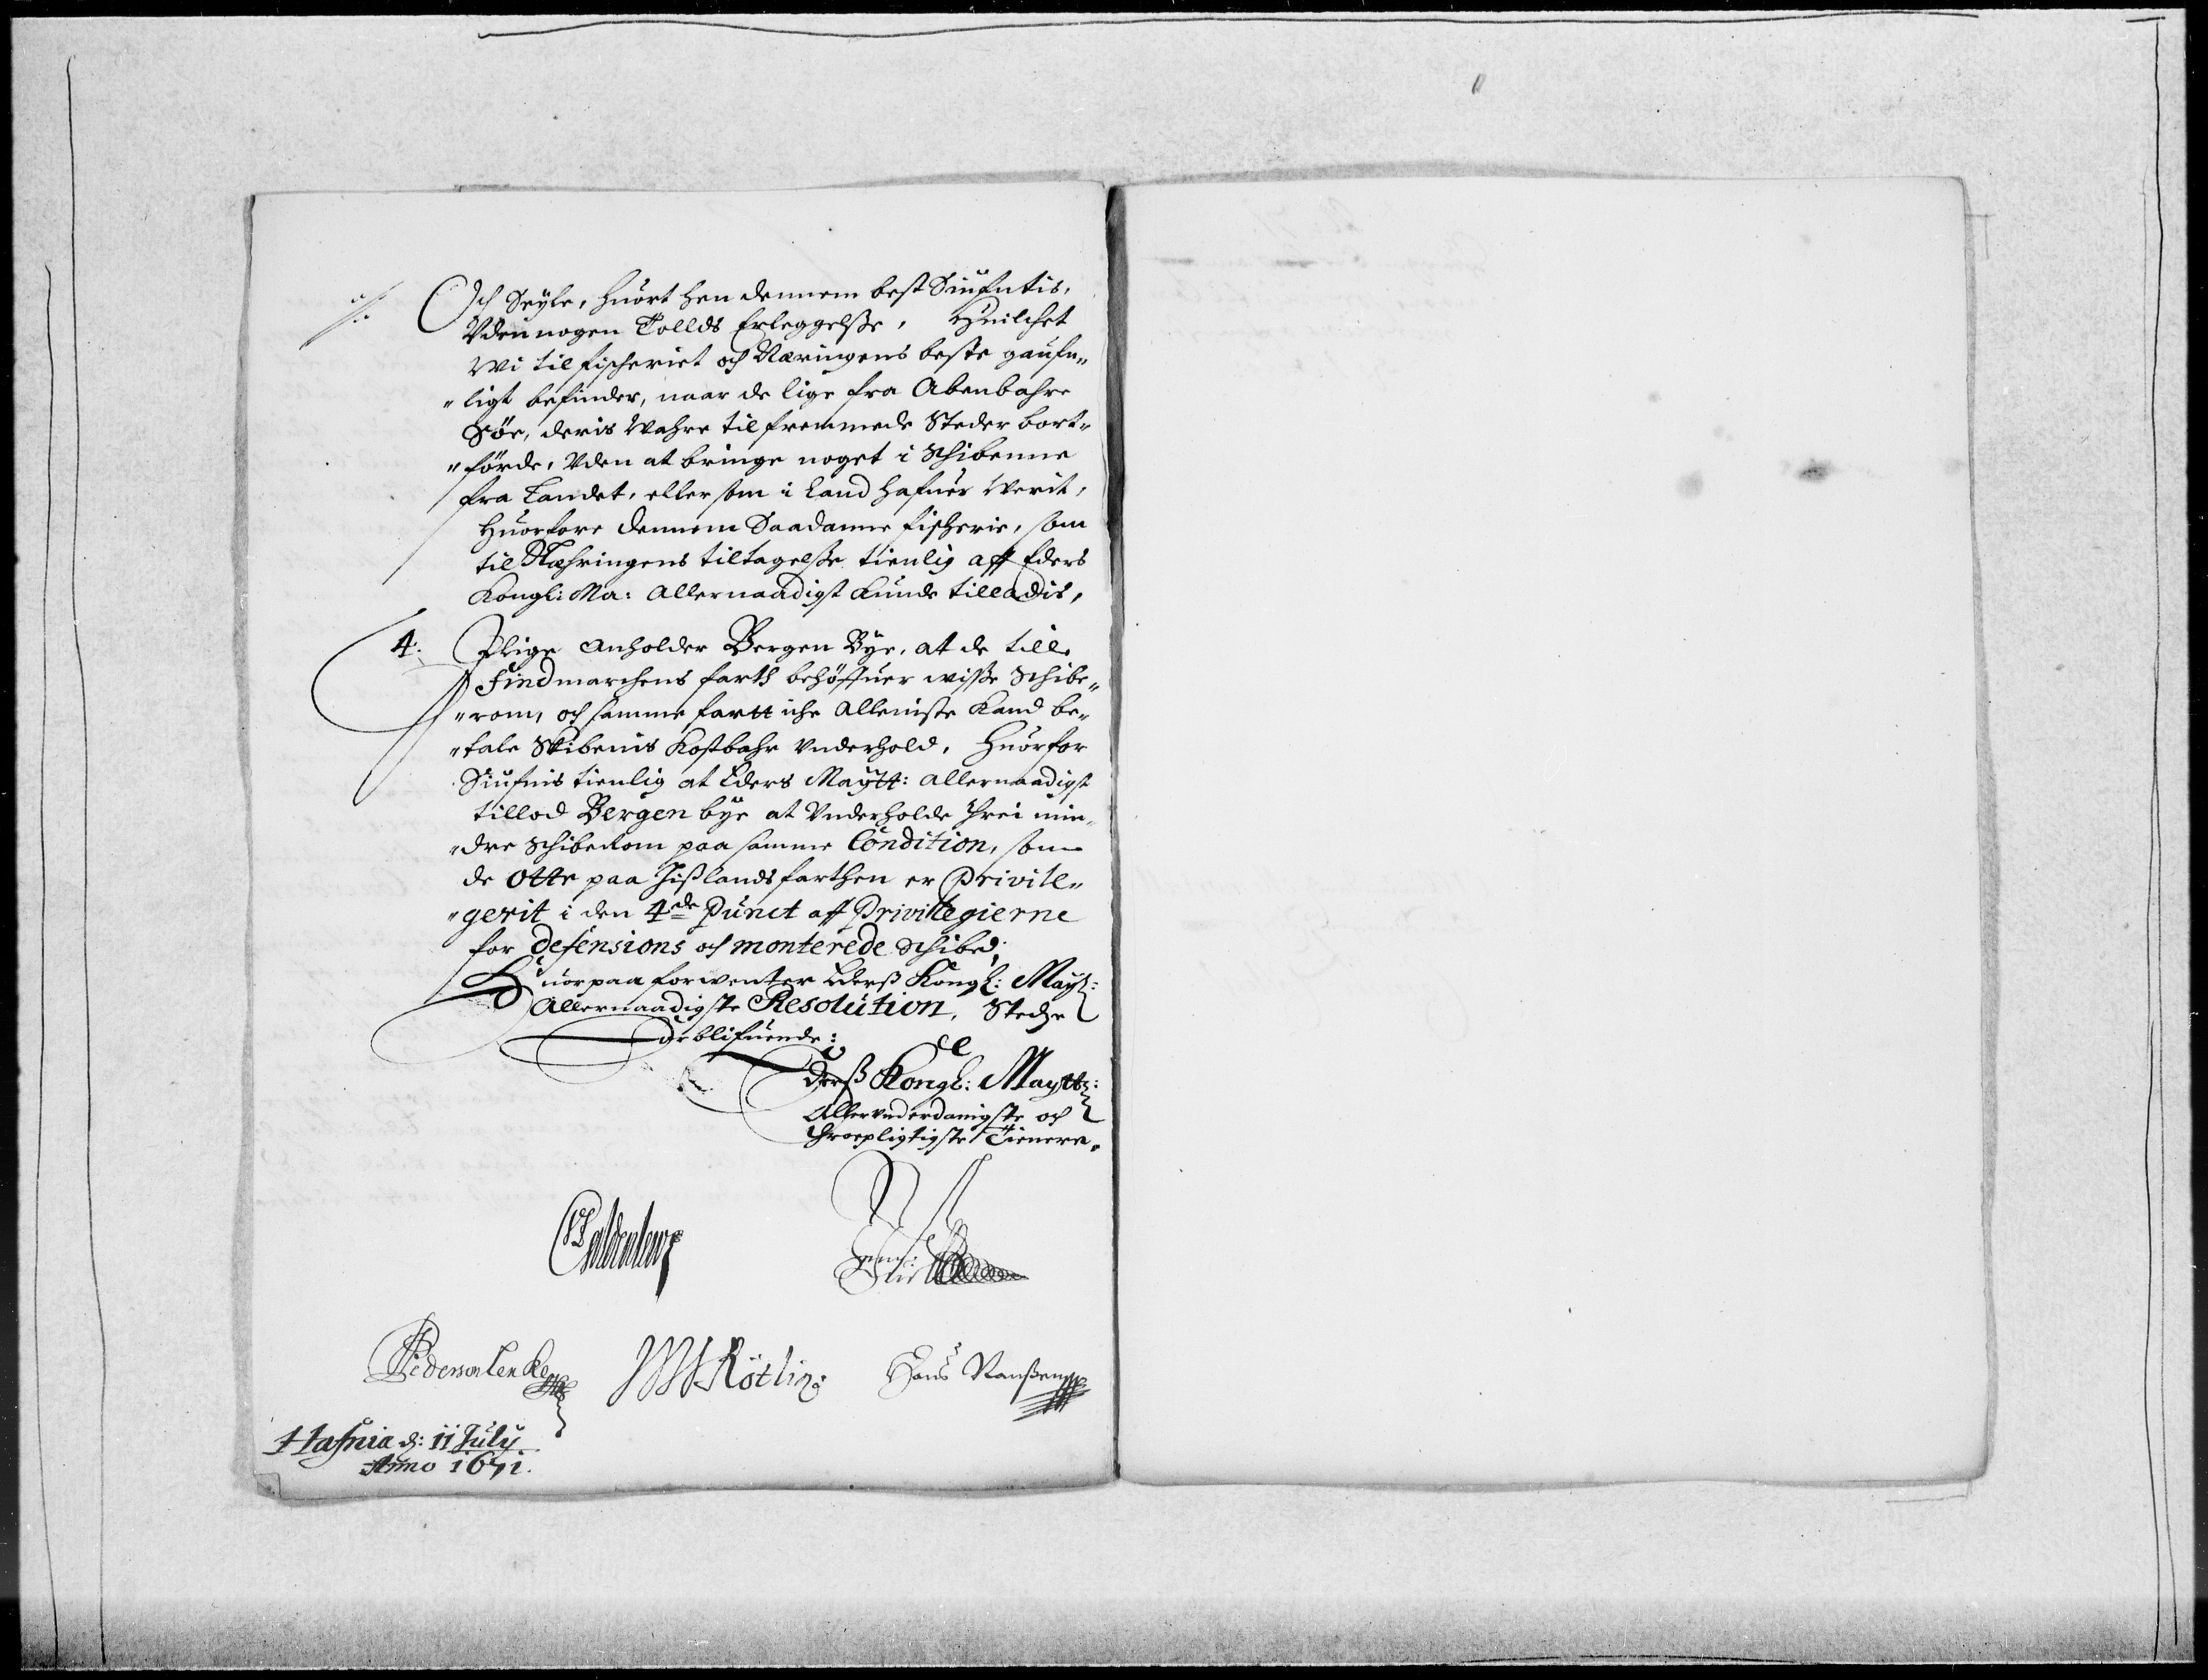 Och Seyle, huort hen dennem best Siufntis,
Vden nogen Tollds Erleggelsse, Huilchet
Wi til fischeriet och Næringens beste gaufn„
„ligt befinder, naar de lige fra Abenbahre
Söe, deris Wahre til fremmede Steder bort„
„förde, Vden at bringe noget i Schibenne
fra Landet, eller som i Land hafuer Werit,
Huorfore dennem Saadanne fischerie, som
til Næhringens tiltagelsse tienlig aff Eders
Kongl: Ma: Allernaadigst kunde tilladis,
4. Iligr Anholder Bergen Bye, at de till
Findmarchens farth behöffuer wisse Schibe„
„rom, och samme fartt iche Alleniste kand be„
„tale Skibenis Kostbahr vnderhold, Huorfor
Siufnis tienlig at Eders Maytt: allernaadigst
tillod Bergen bye at Vnderholde threi min„
„dre Schiberom paa samme Condition, som
de otte paa Jißlandsfarthen er Privile„
„gerit i den 4de Punct aff Privillegierne
for defensions och monterede Schibe,
Huorpaa forwenter Eders Kongl: Mayt:
Allernaadigste Resolution, Stedze
urblifuende:
Ederß Kongl: Maytt:
Allervnderdanigste och
throepligtigste Tienere.
Gyldenlewe
Pederson Lenke
Rötling
Hans Nanßen
Hafnia d: 11 July
Anno 1671.